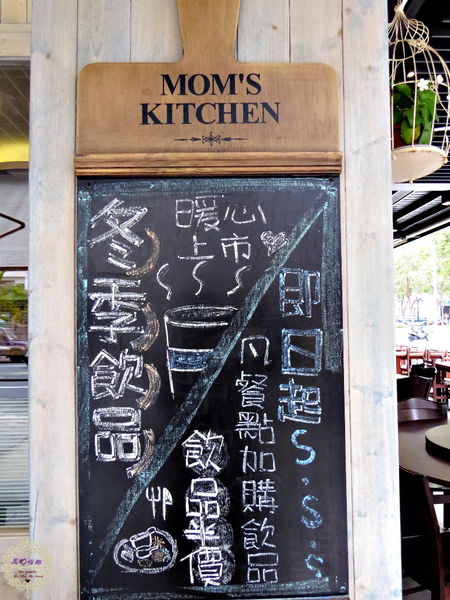 MOM'S
KITCHEN
冬季飲品
暖心
上市
即日起 S.S.S
凡餐點加購飲品
飲品半價